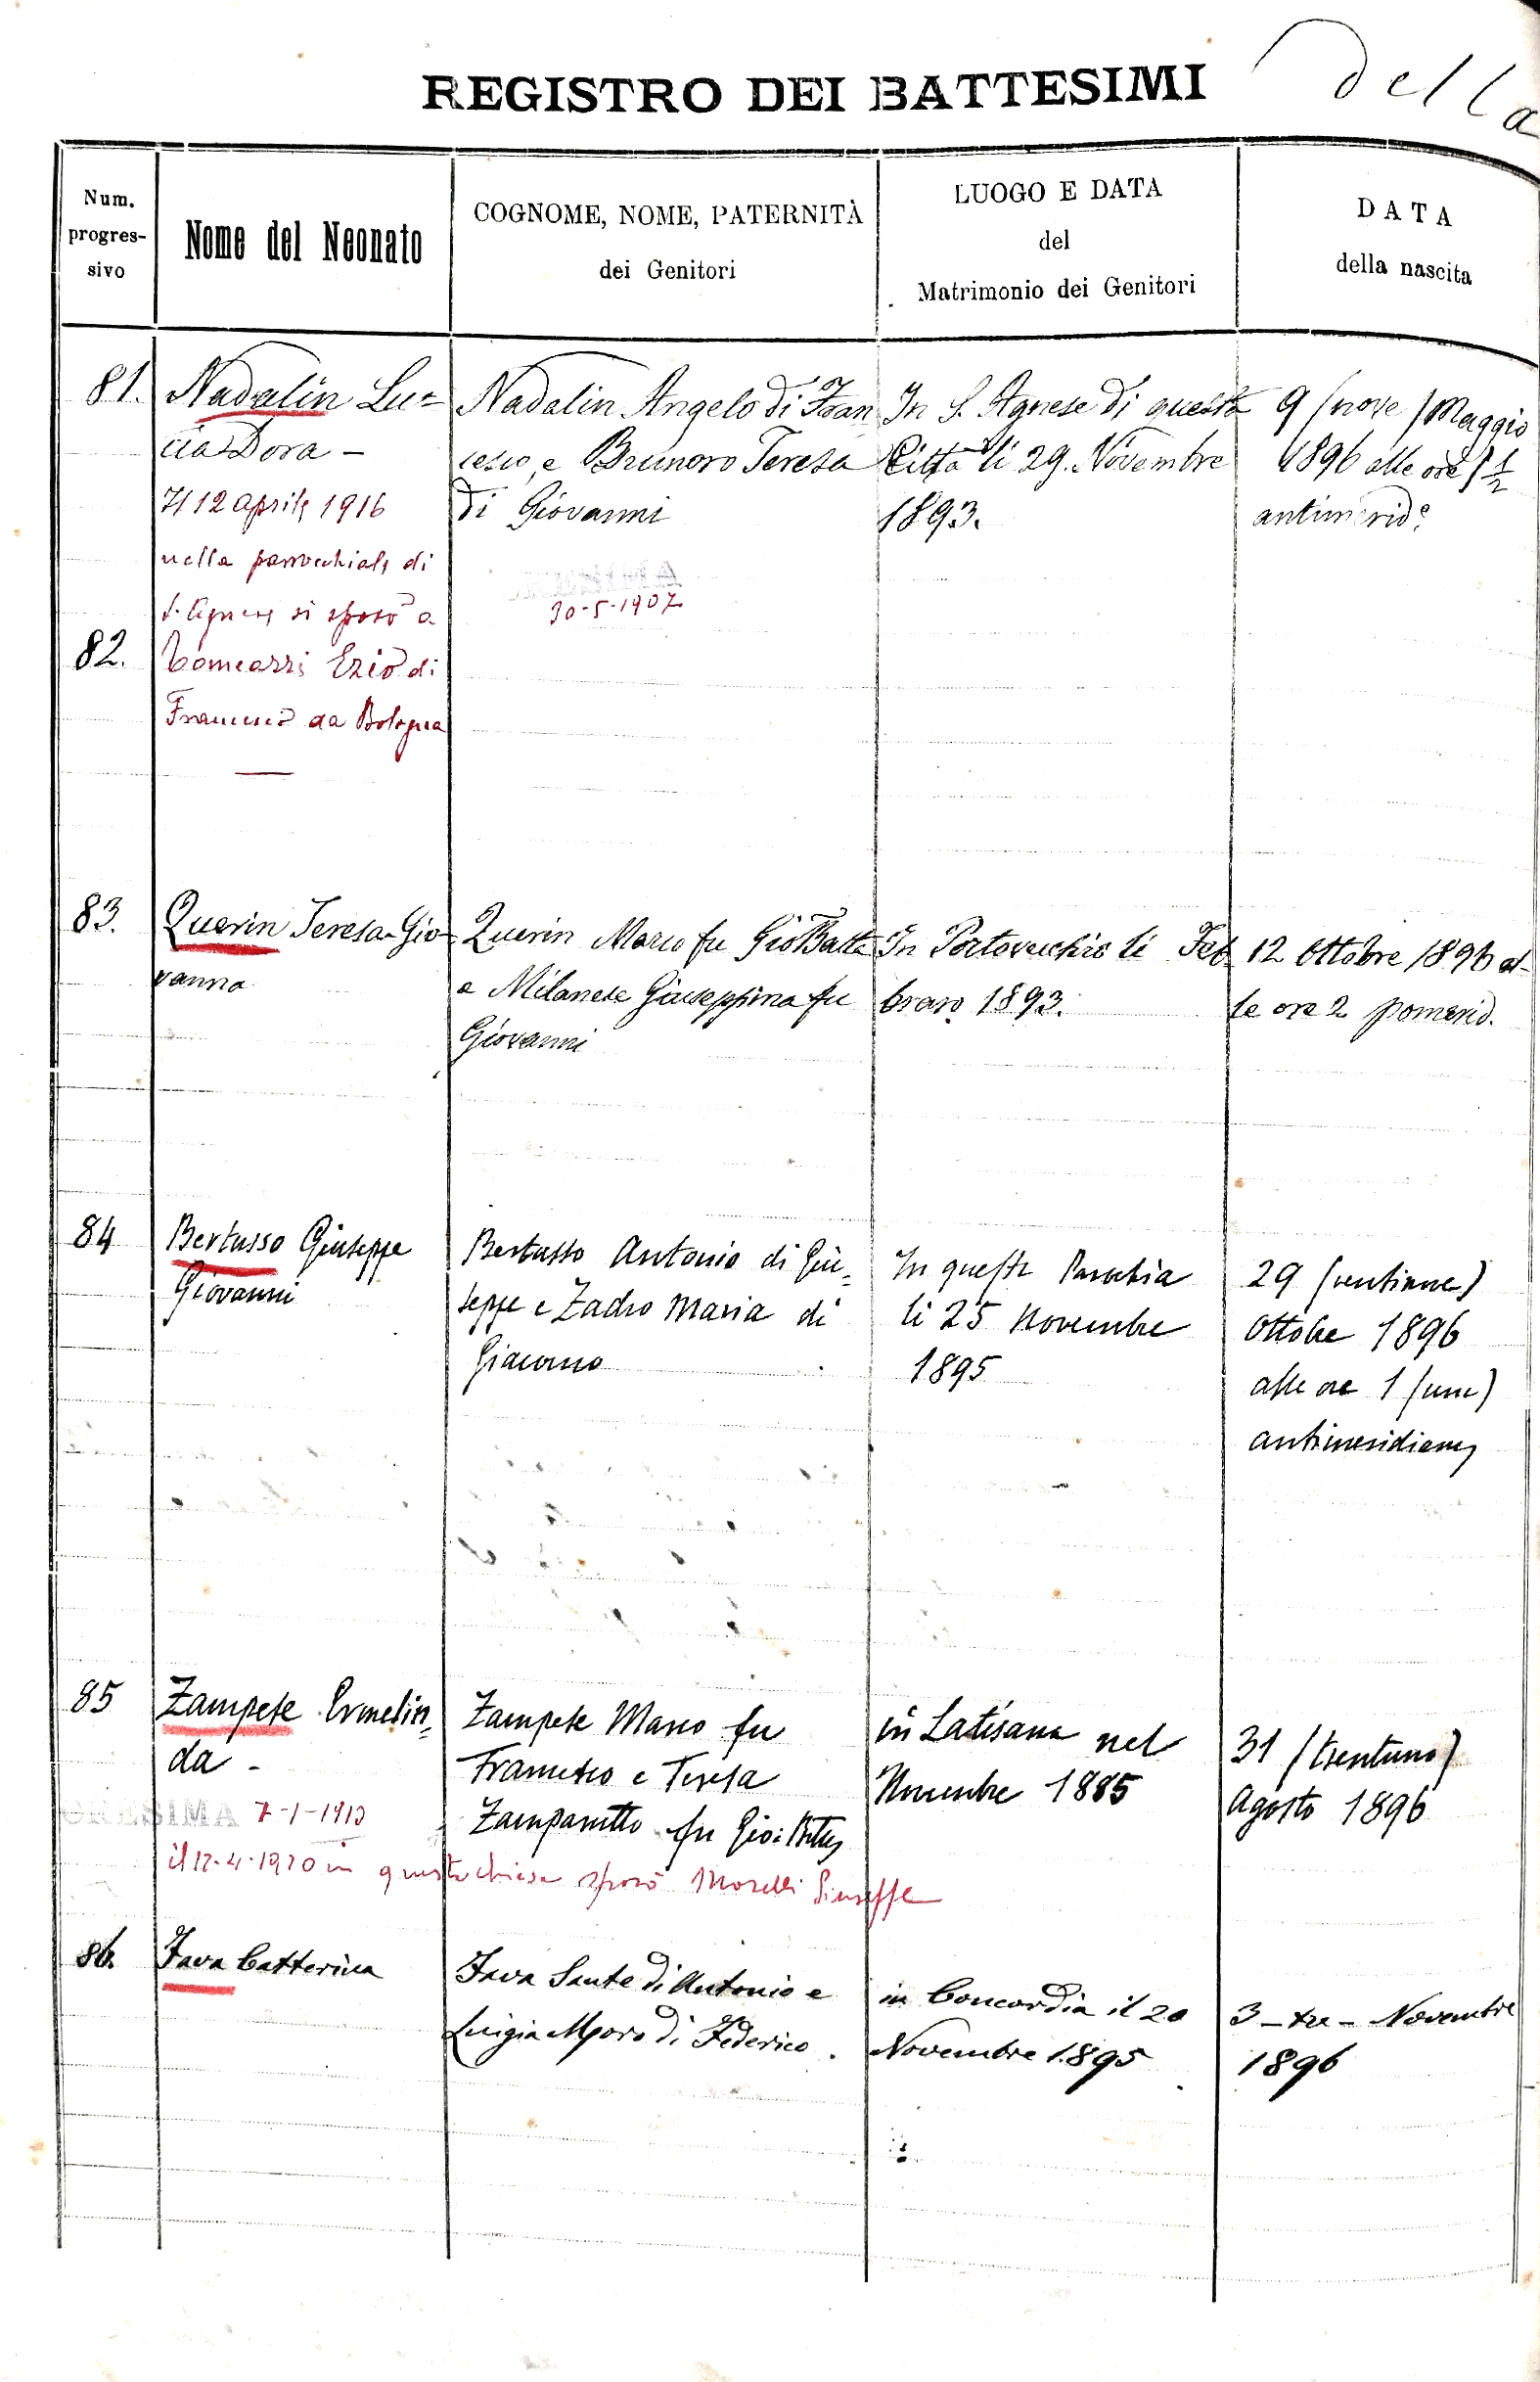 della
REGISTRO DEI BATTESIMI
Num.
progres-
sivo
Nome del Neonato
COGNOME, NOME, PATERNITÀ
dei Genitori
LUOGO E DATA
del
Matrimonio dei Genitori
DATA
della nascita
81.
Nadalin Lu=
cia Dora –
Il 12 Aprile 1916
nella parrocchiale di
S. Agnese si sposò a
Ezio di
Francesco da Bologna
Nadalin Angelo di Fran
cesco, e Brunoro Teresa
di Giovanni
30-5-1907
In S. Agnese di questa
Città li 29. Novembre
1893.
9 (nove) Maggio
1896 alle ore 1 1/2
antimerid.e
82.
83.
Querin Teresa-Gio-
vanna
Querin Marco fu GioBatta
e Milanese Giuseppina fu
Giovanni
In Portovecchio li Feb
braro 1893.
12 Ottobre 1896 al-
le ore 2 pomerid.
84
Bertusso Giuseppe
Giovanni
Bertusso Antonio di Giu=
seppe e Zadro Maria di
Giacomo
In questa Parochia
li 25 Novembre
1895
29 (ventinove)
Ottobre 1896
alle ore 1 (una)
antimeridiane
85
Zampese Ermelin=
da -
7-1-1913
Zampese Marco fu
Francesco e Teresa
fu Gio: Batta
in Latisana nel
Novembre 1885
31 (trentuno)
Agosto 1896
il 12-4-1920 in questa chiesa sposò Morelli Giuseppe
86.
Fava Catterina
Fava Sante di Antonio e
Luigia Moro di Federico.
in Concordia il 20
Novembre 1895
3 – tre – Novembre
1896